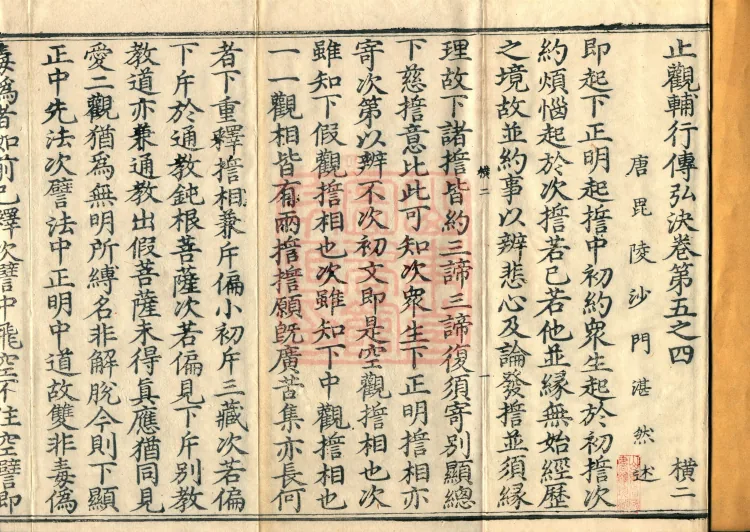 止觀輔行傳弘決卷第五之四　橫二
唐毘陵沙門湛然述
即起下正明起擔中初約眾生起於初擔次
約煩惱起於次擔若已若他並緣無始經歷
之境故並約事以辨悲心及論發擔並須緣
橫二　一
理故下諸擔皆約三諦三諦復須寄別顯總
下慈擔意比此可知次眾生下正明擔相亦
寄次第以辨不次初文即是空觀擔相也次
雖知下假觀擔相也次雖知下中觀擔相也
一一觀相皆有兩擔擔願既廣苦集亦長何
者下重釋擔相兼斥偏小初斥三藏次若偏
下斥於通教鈍根菩薩次若偏見下斥別教
教道亦兼通教出假菩薩未得真應猶同見
愛二觀猶為無明所縛名非解脫今則下顯
正中先法次譬法中正明中道故雙非毒偽
毒為者如前已釋次譬中飛空不住空譬即